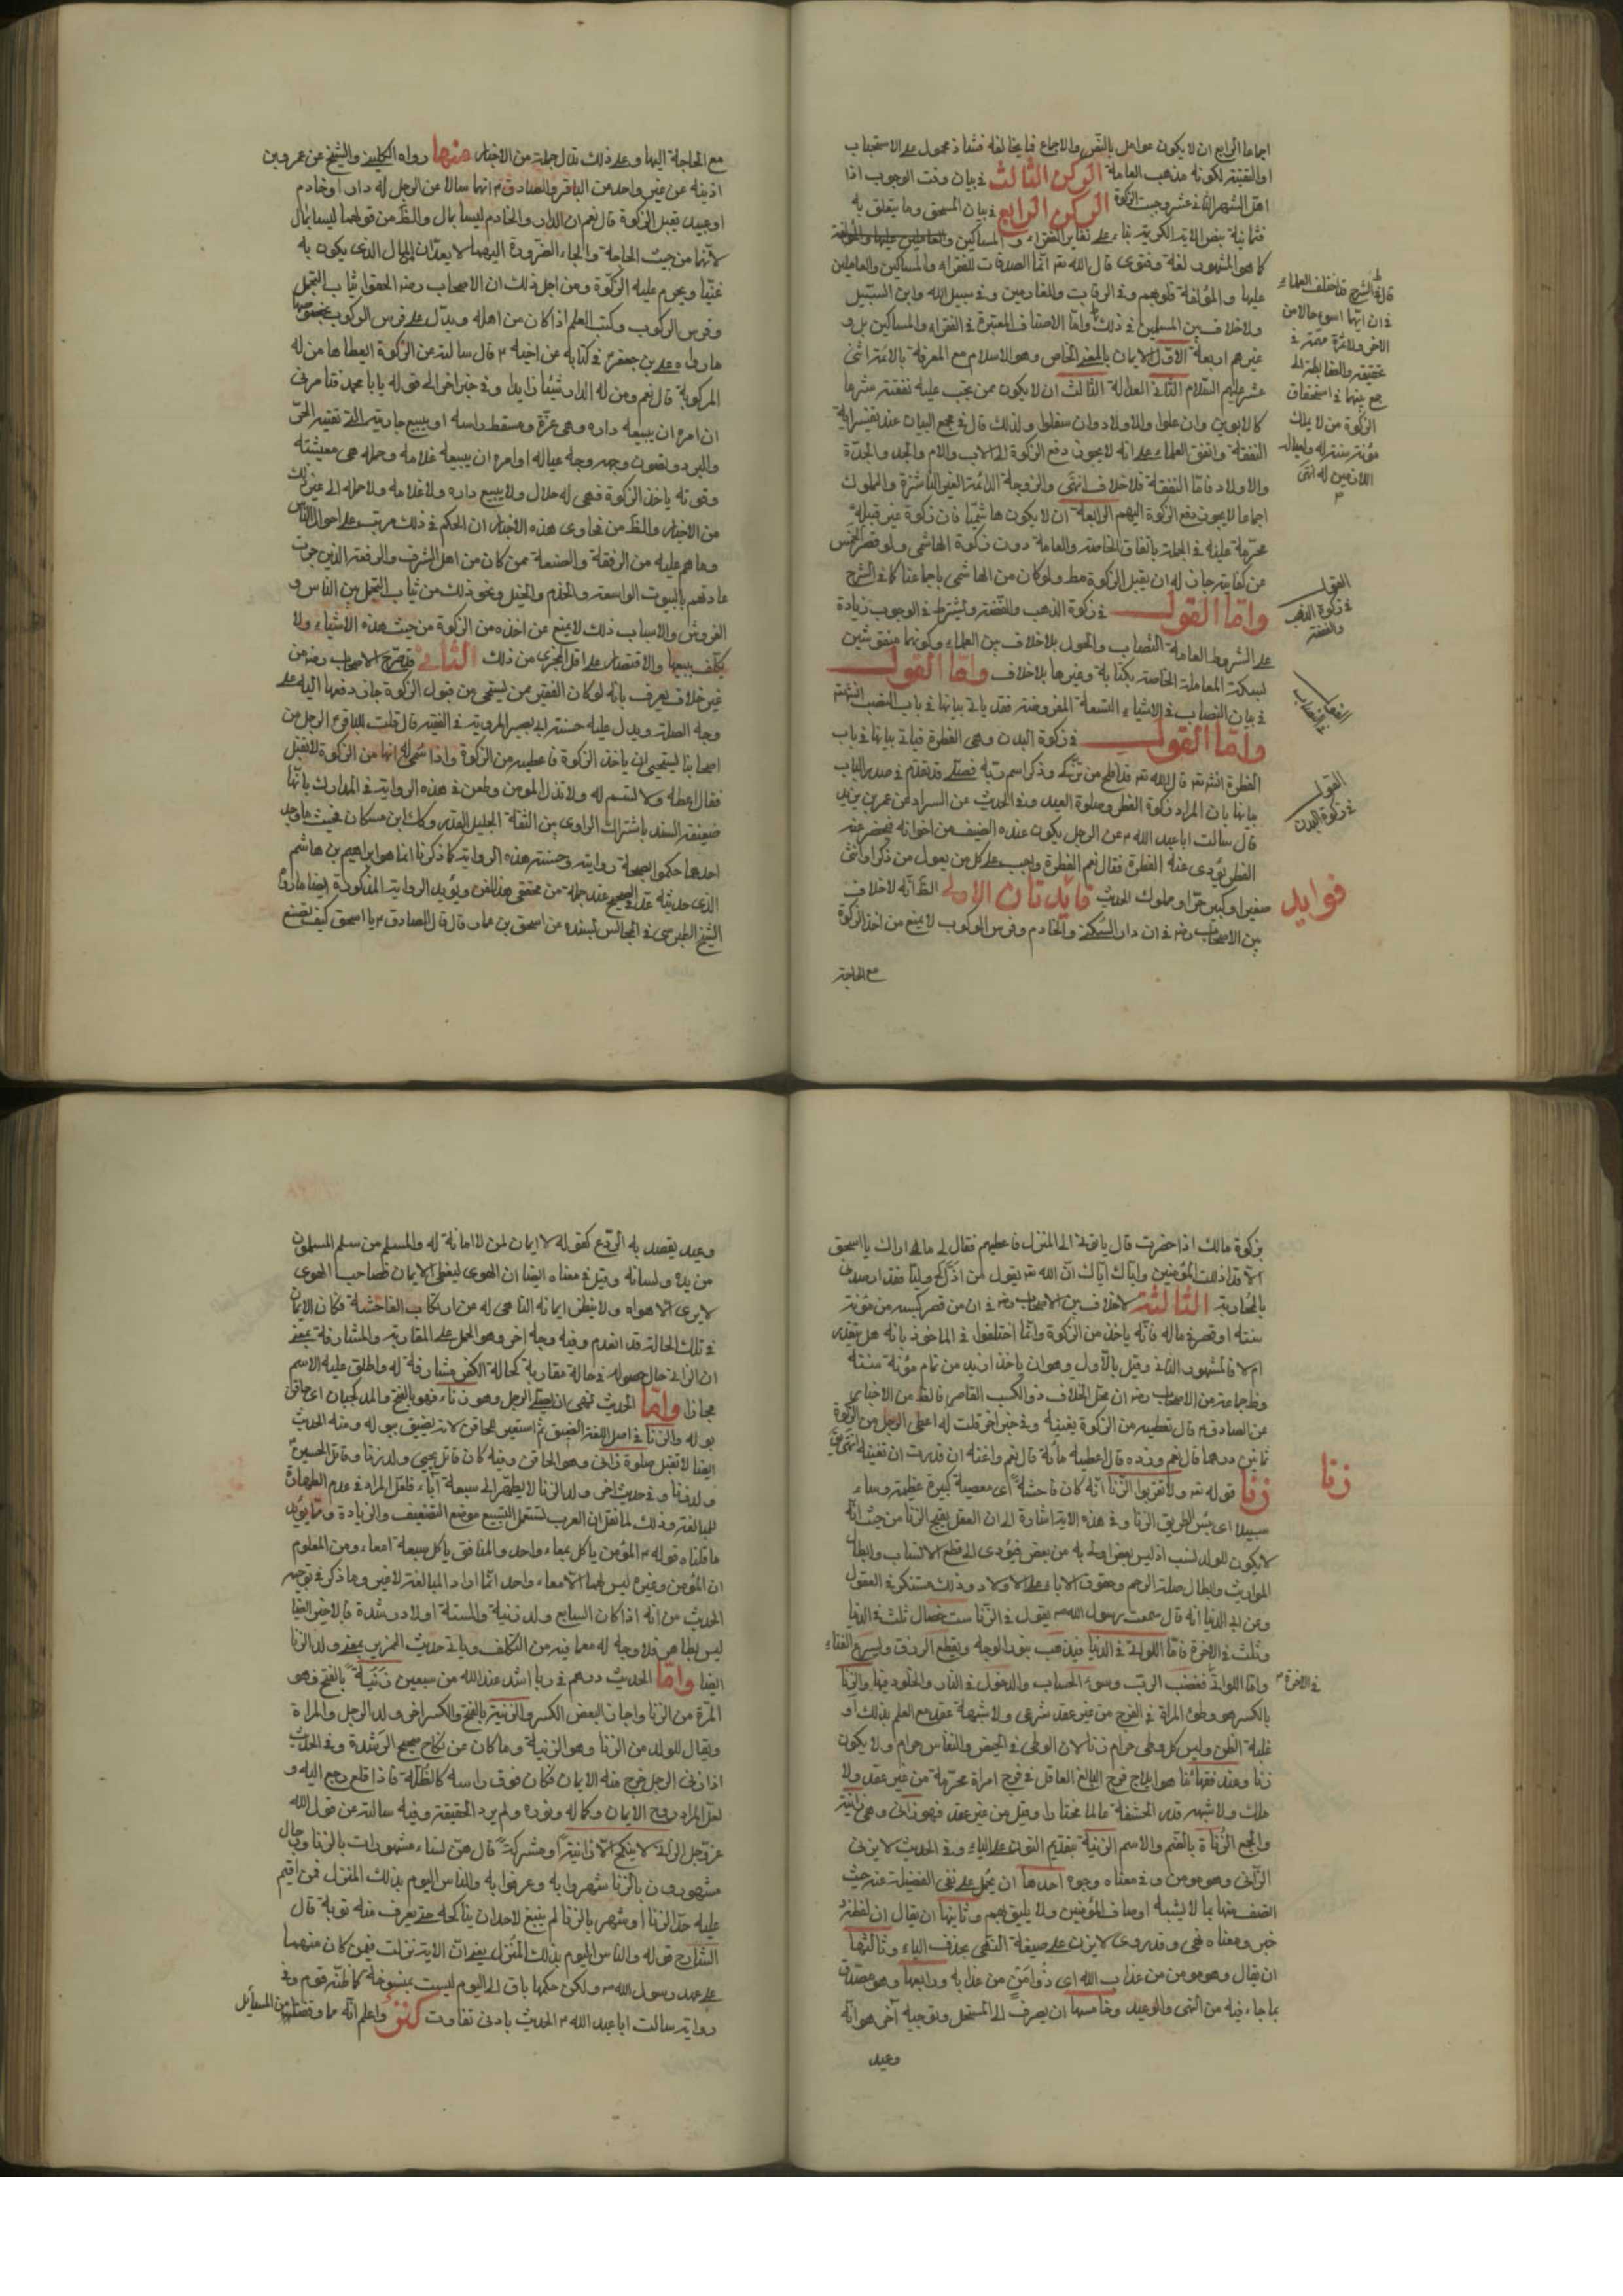 اجماعا الرابع ان لا يكون عوامل بالنص والاجماع فما يخالفه فشاذ محمول على الاستحباب
او التقية لكونه مذهب العامة الركن الثالث في بيان وقت الوجوب اذا
اهل الشهر الثاني عشر وجبت الزكوة الركن الرابع في بيان المستحق وما يتعلق به
فثمانية بنص الاية الكريمة بناء على تغاير الفقراء والمساكين
كما هو المشهور لغة وفتوى قال الله تع انما الصدقات للفقراء والمساكين والعاملين
عليها والمؤلفة قلوبهم وفي الرقاب والغارمين وفي سبيل الله وابن السبيل
ولا خلاف بين المسلمين في ذلك واما الاصناف المعتبرة في الفقراء والمساكين بل و
غيرهم اربعة الاول الايمان بالمعنى الخاص وهو الاسلام مع المعرفة بالائمة الاثنى
عشر عليهم السلام الثاني العدالة الثالث ان لا يكون ممن يجب عليه نفقته شرعا
كالابوين وان علوا والاولاد وان سفلوا ولذلك قال في مجمع البيان عند تفسير اية
النفقة واتفق العلماء على انه لا يجوز دفع الزكوة الى الاب والام والجد والجدة
والاولاد فاما النفقة فلا خلاف انتهى والزوجة الدائمة الغير الناشزة والمملوك
اجماعا لا يجوز دفع الزكوة اليهم الرابعة ان لا يكون هاشميا فان زكوة غير قبيله
محرمة عليه في الجملة باتفاق الخاصة والعامة دون زكوة الهاشمي ولو قصر الخمس
عن كفايته جاز له ان يقبل الزكوة مط ولو كان من الهاشمي باجماعنا كما في الشرح
واما القول في زكوة الذهب والفضة ويشترط في الوجوب زيادة
على الشروط العامة النصاب والحول بلا خلاف بين العلماء وكونهما منقوشين
بسكة المعاملة الخاصة بكتابة وغيرها بلا خلاف واما القول
في بيان النصاب في الاشياء التسعة المفروضة فقد ياتي بيانها في باب النصب انشه
واما القول في زكوة البدن وهي الفطرة فياتي بيانها في باب
الفطرة انشه تع قال الله تع قد افلح من تزكى وذكر اسم ربه فصلى قد تقدم في صدر الباب
بيانها بان المراد زكوة الفطر وصلوة العيد وفي الحديث عن السراد عن عمر بن يزيد
قال سالت ابا عبد الله ع عن الرجل يكون عنده الضيف من اخوانه فيحضر عند
الفطر يؤدي عنه الفطرة فقال نعم الفطرة واجب على كل من يعول من ذكر او انثى
صغير او كبير حر او مملوك الحديث فايدتان الاولى الظ انه لا خلاف
بين الاصحاب رضه في ان دار السكنى والخادم وفرس الركوب لا يمنع من اخذ الزكوة
مع الحاجة
قال في الشرح قد اختلف العلماء
في ان ايهما اسوء حالا من
الاخر ولا ثمرة مهمة في
تحقيقه والضابطة الى
جمع بينهما في استحقاق
الزكوة من لا يملك
مؤنة سنة له ولعياله
اللازمين له انتهى
القول
في زكوة الذهب
والفضة
القول
في زكوة البدن
فوايد
مع الحاجة اليها وعلى ذلك تدل جملة من الاخبار منها رواه الكليني والشيخ عن عمر بن
اذينه عن غير واحد عن الباقر والصادق ع انهما سالا عن الرجل له دار او خادم
او عبد يقبل الزكوة قال نعم ان الدار والخادم ليسا بمال والظ من قولهما ليسا بمال
لانهما من حيث الحاجة والجاء الضرورة اليهما لا يعدان المال الذي يكون به
غنيا ويحرم عليه الزكوة ومن اجل ذلك ان الاصحاب رضه الحقوا ثياب التجمل
وفرس الركوب وكتب العلم اذا كان من اهله ويدل على فرس الركوب بخصوصها
ما رواه علي بن جعفر ع في كتابه عن اخيه ع قال سالته عن الزكوة ايعطاها من له
المركوبة قال نعم ومن له الدار
ان امره ان يبيعه داره وهي عزة ومسقط راسه او يبيع جاريته التي تقيه الحر
والبرد وتصون وجهه ووجه عياله او امره ان يبيعه غلامه وجمله هي معيشته
وقوته ياخذ الزكوة فهي له حلال ولا يبيع داره ولا غلامه ولا جمله الى غير ذلك
من الاخبار والظ من فحاوى هذه الاخبار ان الحكم في ذلك مرتب على احوال الناس
وما هم عليه من الرفعة والضعة فمن كان من اهل الشرف والرفعة الذين جرت
عادتهم بالبيوت الواسعة والخدم والخيل ونحو ذلك من ثياب التجمل بين الناس و
الفروش والاسباب ذلك لا يمنع عن اخذه من الزكوة من حيث هذه الاشياء ولا
يكلف ببيعها والاقتصار على اقل المجزي من ذلك الثانية قد صرح الاصحاب رضه من
غير خلاف يعرف بانه لو كان الفقير ممن يستحي من قبول الزكوة جاز دفعها اليه على
وجه الصلة ويدل عليه حسنة ابي بصير المروية في الفقيه قال قلت للباقر ع الرجل من
اصحابنا يستحيي ان ياخذ الزكوة فاعطيه من الزكوة واذا سمى له انها من الزكوة لا يقبل
فقال اعطه ولا تسم له ولا تذل المؤمن وطعن في هذه الرواية في المدارك بانها
ضعيفة السند باشتراك الراوي بين الثقة الجليل القدر
احدهما حكموا بصحة روايته وحسنة هذه الرواية كما ذكرنا انما هو ابراهيم بن هاشم
الذي حديثه عد في الصحيح عند جملة من محققي هذا الفن ويؤيد الرواية المذكورة ايضا ما رواه
الشيخ الطوسي في المجالس بسنده عن اسحق بن عمار قال قال الصادق ع يا اسحق كيف تصنع
بزكوة مالك اذا حضرت قال ياتوني الى المنزل فاعطيهم فقال لي ما اراك يا اسحق
الا قد اذللت المؤمنين واياك اياك ان الله تع يقول من اذل لي وليا فقد ارصدني
بالمحاربة الثالثة لا خلاف بين الاصحاب رضه في ان من قصر كسبه من مؤنة
سنته او قصر ماله فانه ياخذ من الزكوة وانما اختلفوا في الماخوذ بانه هل يتقدر
ام لا فالمشهور الثاني وقيل بالاول وهو ان ياخذ ازيد من تمام مؤنة سنته
وظ جماعة من الاصحاب رضه ان محل الخلاف ذو الكسب القاصر فالظ من الاخبار
عن الصادق ع قال تعطيه من الزكوة بغنيه وفي خبر اخر قلت له اعطي الرجل من الزكوة
ثمانين درهما قال نعم وزده قال اعطيه مائة قال نعم واغنه ان قدرت ان تغنيه انتهى
زنا قوله تع ولا تقربوا الزنا انه كان فاحشة اي معصية كبيرة عظيمة وساء
سبيلا اي بئس الطريق الزنا وفي هذه الاية اشارة الى ان العقل يقبح الزنا من حيث انه
لا يكون للولد نسب اذ ليس بعض اولى به من بعض فيؤدي الى قطع الانساب وابطال
المواريث وابطال صلة الرحم وحقوق الاباء على الاولاد وذلك مستنكر في العقول
وعن ابي الدنيا انه قال سمعت رسول الله ص يقول في الزنا ست خصال ثلث في الدنيا
وثلث في الاخرة فاما اللواتي في الدنيا فيذهب بنور الوجه ويقطع الرزق ويسرع الفناء
واما اللواتي في الاخرة فغضب الرب وسوء الحساب والدخول في النار والخلود فيها والزنا
بالكسر هو وطئ المراة في الفرج من غير عقد شرعي ولا شبهة عقد مع العلم بذلك او
غلبة الظن وليس كل وطي حرام زنا لان الوطي في الحيض والنفاس حرام ولا يكون
زنا وعند فقهائنا هو ايلاج فرج البالغ العاقل في فرج امراة محرمة من غير عقد ولا
ملك ولا شبهة قدر الحشفة عالما مختارا وقيل من غير عقد فهو زاني وهي زانية
والجمع الزناة بالضم والاسم الزنية بتقديم النون على الياء وفي الحديث لا يزني
الزاني وهو مؤمن وفي معناه وجوه احدها ان يحمل على نفي الفضيلة عنه حيث
اتصف منها بما لا يشبه اوصاف المؤمنين ولا يليق بهم وثانيها ان يقال ان لفظه
خبر ومعناه نهي وقد روي لا يزن على صيغة النهي بحذف الياء وثالثها
ان يقال وهو مؤمن من عذاب الله اي ذو امن من عذابه ورابعها وهو مصدق
بما جاء فيه من النهي والوعيد وخامسها ان يصرف الى المستحل وتوجيه آخر هو انه
وعيد
زنا
وعيد يقصد به الردع كقوله لا ايمان لمن لا امانة له والمسلم من سلم المسلمون
من يده ولسانه وقيل في معناه ايضا ان الهوى ليغطي الايمان فصاحب الهوى
لا يرى الا هواه ولا ينظر ايمانه الناهي له من ارتكاب الفاحشة فكان الايمان
في تلك الحالة قد انعدم وفيه وجه اخر وهو الحمل على المقاربة والمشارفة بمعنى
ان الزاني حال حصوله في حالة مقاربة لحالة الكفر مشارفة له واطلق عليه الاسم
مجازا واما الحديث نهى ان يصلي الرجل وهو زناء فهو بالفتح والمد كجبان اي حاقن
بوله والزنا في اصل اللغة الضيق ثم استعير للحاقن لانه يضيق ببوله ومنه الحديث
ايضا لا تقبل صلوة زاني وهو الحاقن وفيه كان قاتل يحيى ولد زنا وقاتل الحسين ع
ولد زنا وفي حديث اخر ولد الزنا لا يطهر الى سبعة آباء فلعل المراد في عدم الطهارة
للمبالغة وذلك لما نقل ان العرب تستعمل التسبيع موضع التضعيف والزيادة ومما يؤيد
ما قلناه قوله ص المؤمن ياكل بمعاء واحد والمنافق ياكل سبعة امعاء ومن المعلوم
ان المؤمن وغيره ليس لهما الا معاء واحد انما اراد المبالغة لا غير وما ذكر في توجيه
الحديث من انه اذا كان السابع ولد زنية والستة اولاد رشدة فبالاخير ايضا
ليس بطاهر فلا وجه له مع ما فيه من التكلف وياتي حديث المزيرين بمعنى ولد الزنا
ايضا واما الحديث درهم في ربا اشد عند الله من سبعين زنية بالفتح فهو
المرة من الزنا واجاز البعض الكسر والزنية بالفتح والكسر اخر ولد الرجل والمراة
ويقال للولد من الزنا وهو الزنية وما كان من نكاح صحيح الرشدة وفي الحديث
اذا زنى الرجل خرج منه الايمان فكان فوق راسه كالظلة فاذا قلع رجع اليه و
لعل المراد روح الايمان وكماله ونوره ولم يرد الحقيقة وفيه سالته عن قول الله
عز وجل الزاني لا ينكح الا زانية او مشركة قال هن نساء مشهورات بالزنا ورجال
مشهورون بالزنا شهروا به وعرفوا به والناس اليوم بذلك المنزل فمن اقيم
عليه حد الزنا او شهر بالزنا لم ينبغ لاحد ان يناكحه حتى يعرف منه توبة قال
الشارح قوله والناس اليوم بذلك المنزل يعني ان الاية نزلت فيمن كان متهما
على عهد رسول الله ص ولكن حكمها باق الى اليوم ليست بمنسوخة كما ظنه قوم وفي
رواية سالت ابا عبد الله ع الحديث بادنى تفاوت كنز واعلم انه مما وقفنا من المسائل